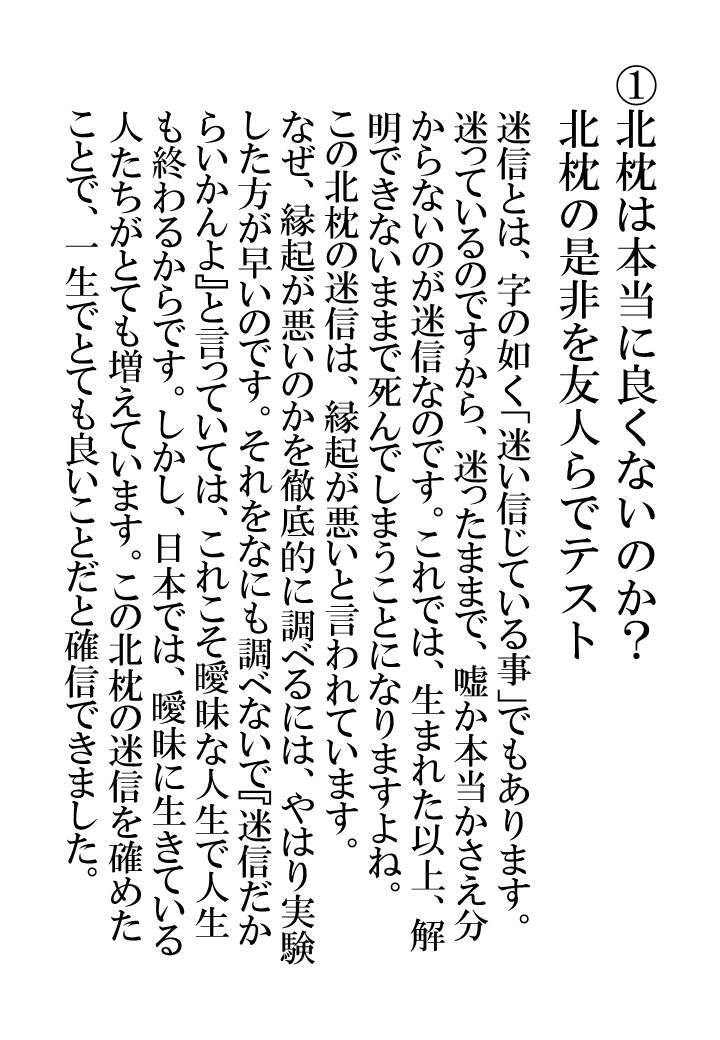 ①北枕は本当に良くないのか?
北枕の是非を友人らでテスト
迷信とは、字の如く「迷い信じている事」でもあります。
迷っているのですから、迷ったままで、嘘か本当かさえ分
からないのが迷信なのです。これでは、生まれた以上、解
明できないままで死んでしまうことになりますよね。
この北枕の迷信は、縁起が悪いと言われています。
なぜ、縁起が悪いのかを徹底的に調べるには、やはり実験
した方が早いのです。それをなにも調べないで『迷信だか
らいかんよ』と言っていては、これこそ曖昧な人生で人生
も終わるからです。しかし、日本では、曖昧に生きている
人たちがとても増えています。この北枕の迷信を確めた
ことで、一生でとても良いことだと確信できました。